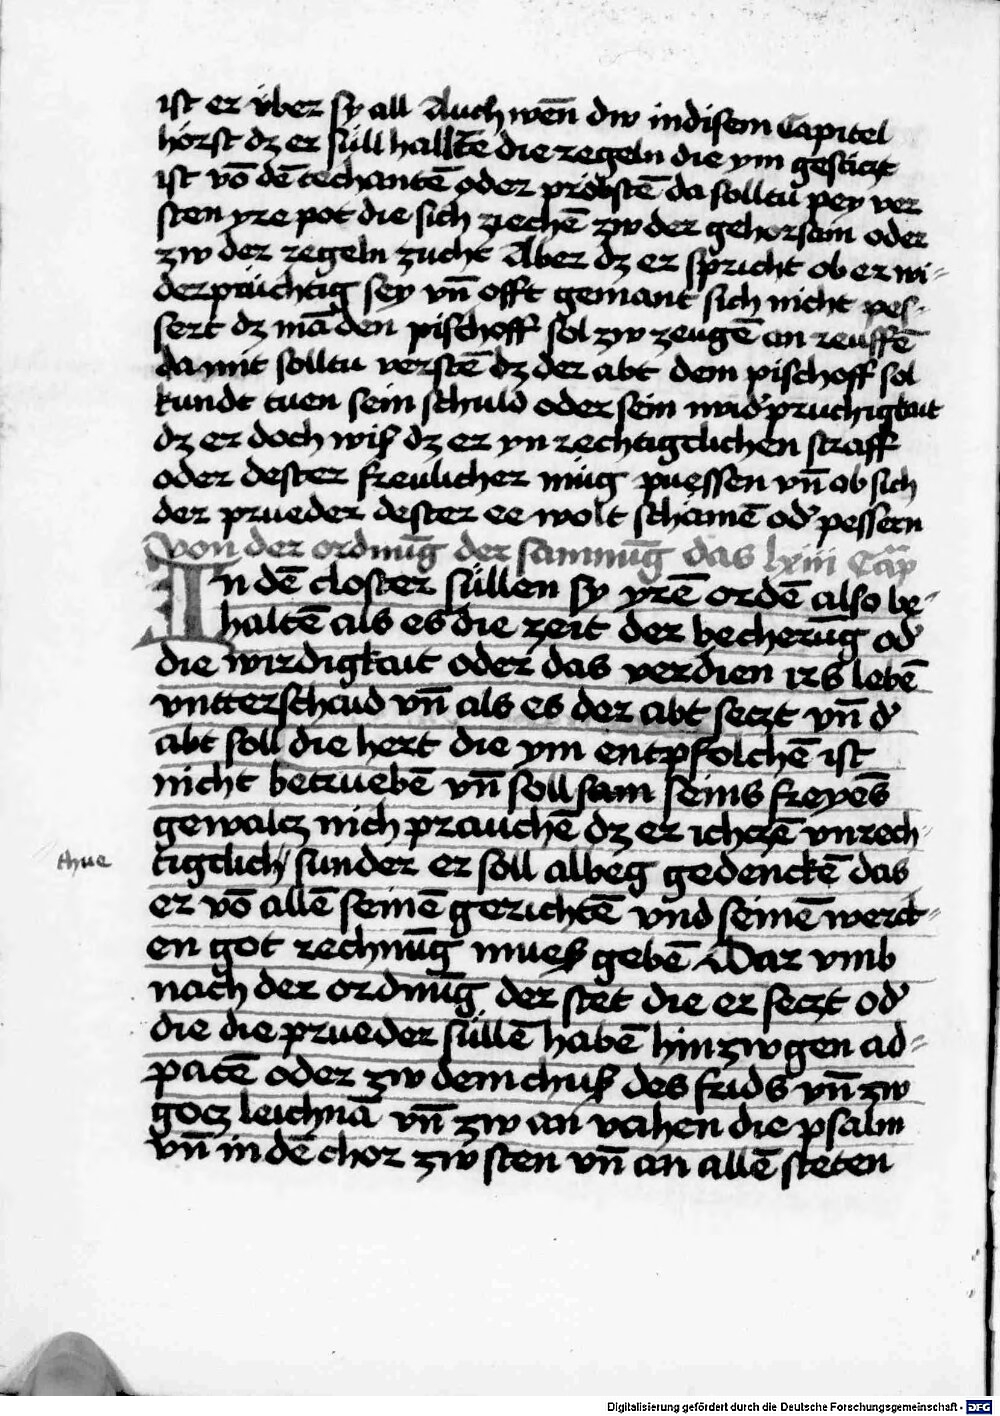 ist er vber sy all Auch wen̄ dw in disem Capitel
hörst dz er süll halltē die regeln die ym gesäczt
ist vō dē techantē oder pröbstē da solltu pey ver
sten yre pot die sich ziechē zw der gehorsam oder
zw der regeln zucht Aber dz er spricht ob er wi-
derprüchtig sey vn̄ offt gemant sich nicht pes-
sert dz mā den pischoff sol zw zeugē an reuffē
da mit solltu verstē dz der abt dem pischoff sol
kundt tuen sein schuld oder sein wid'pruchigkait
dz er doch wiß dz er yn rechtigclichen straff
oder dester freulicher müg puessen vn̄ ob sich
der prueder dester ee wolt schämē od' pessern
Von der ordnūg der samnūg das lxiii Cap̄
In dē closter süllen sy yrē ordē also be-
haltē als es die zeit der becherūg od'
die wirdigkait oder das verdien irs lebē
vntterschaid vn̄ als es der abt seczt vn̄ d'
abt soll die hert die ym entpfolchē ist
nicht betruebē vn̄ soll sam seins freyēs
gewalcz nich prauchē dz er ichczē vnrech-
thue
tigclich / sunder er soll albeg gedenckē das
er vō allē seinē gerichtē vnd seinē werck-
en got rechnūg mueß gebē Dar vmb
nach der ordnūg der stet die er seczt od'
die die prueder süllē habē hin zw gen ad-
pacē oder zw dem chuß des frids vn̄ zw
gocz leichnā vn̄ zw an vahen die psalm
vn̄ in dē chor zw sten vn̄ an allē steten
Digitalisierung gefördert durch die Deutsche Forschungsgemeinschaft - DFG